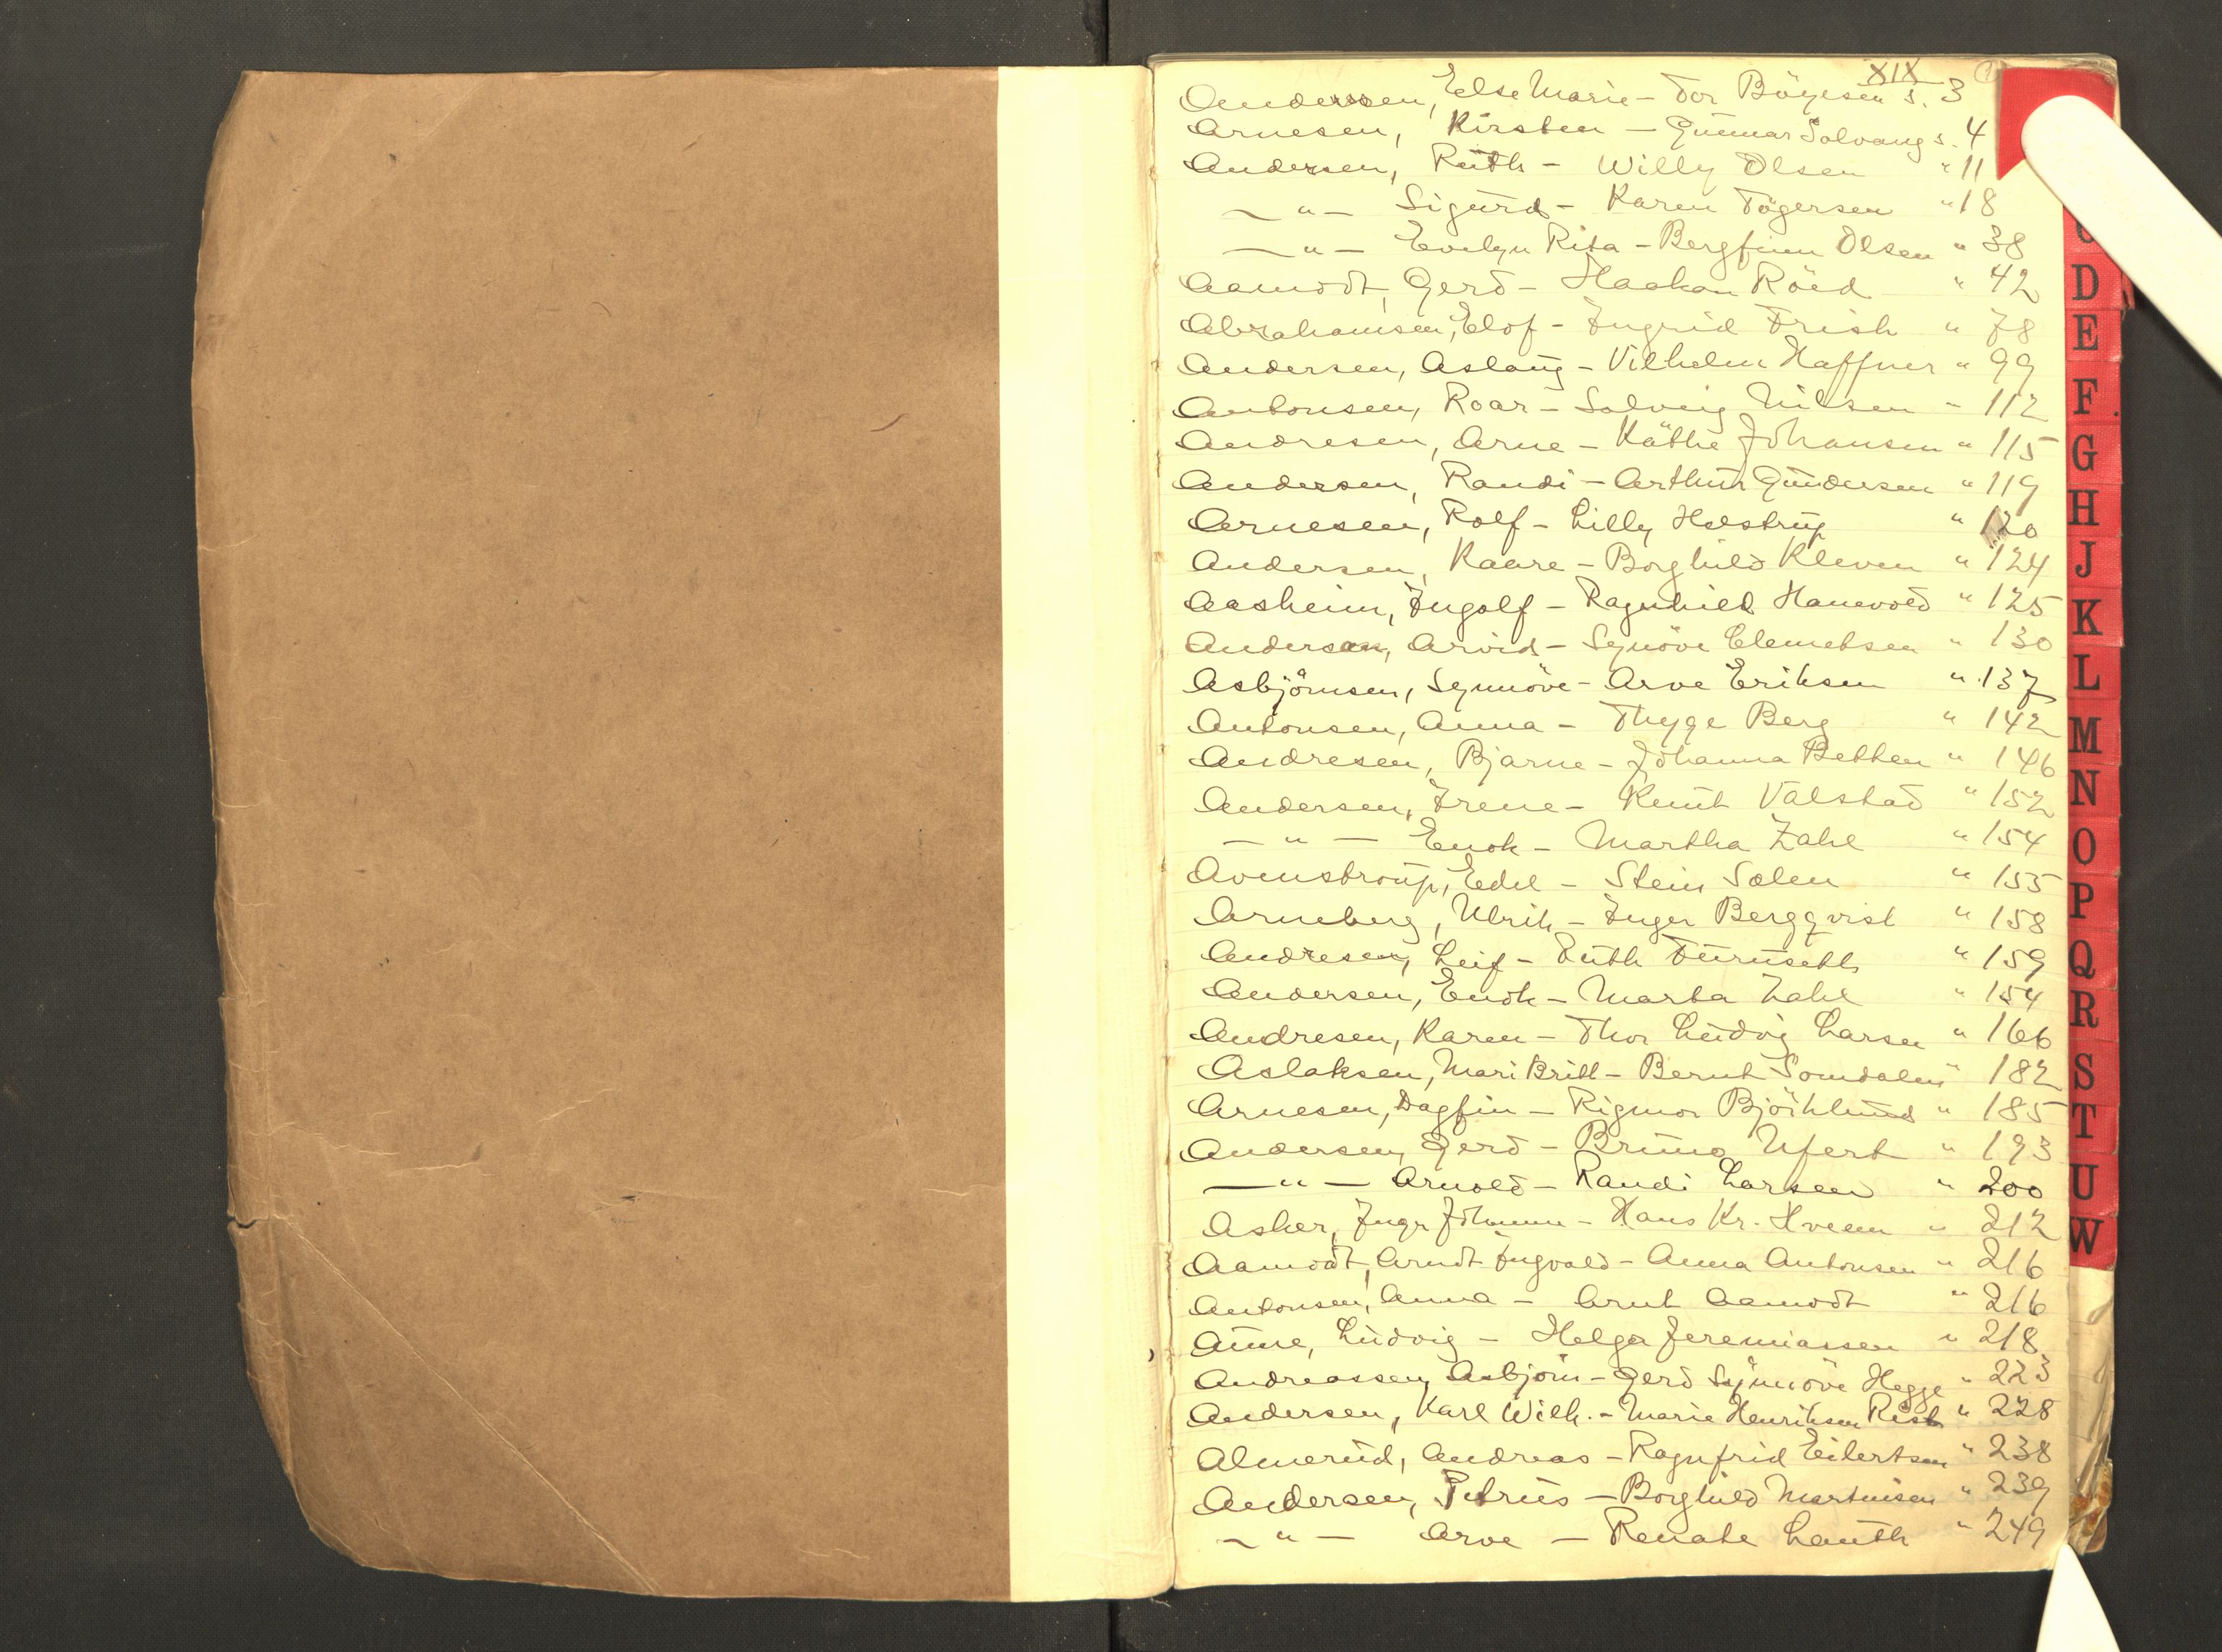 XIX
Andersen, Else Marie - Tor Böyesen s. 3
Arnesen, Kirsten - Gunnar Solvang s. 4
Andersen, Ruth - Willy Olsen " 11
— " — Sigurd - Karen Tögersen " 18
— " — Evelyn Rita - Bergfinn Olsen " 38
Aamodt, Gerd - Haakon Röed " 42
Abrahamsen, Elof - Ingrid Frish " 78
Andersen, Aslaug - Vilhelm Haffner " 99
Antonsen, Roar - Solveig Nilsen " 112
Andresen, Arne - Käthe Johansen " 115
Andersen, Randi - Arthur Gundersen " 119
Arnesen, Rolf - Lilly Holstrup " 120
Andersen, Kaare - Borghild Kleven " 124
Aasheim, Ingolf - Ragnhild Hanevold " 125
Anderson, Arvid - Synöve Clemetsen " 130
Asbjörnsen, Synnöve - Arve Eriksen " 137
Antonsen, Anna - Thyge Berg " 142
Andresen, Bjarne - Johanna Bekken " 146
Andersen, Irene - Knut Valstad " 152
— " — Enok - Martha Zahl " 154
Avenstroup, Edel - Stein Sölen " 155
Arneberg, Ulrik - Inger Bergqvist " 158
Andresen, Leif - Ruth Furuseth " 159
Andersen, Enok - Marta Zahl " 154
Andresen, Karen - Thor Ludvig Larsen " 166
Aslaksen, Mari Britt - Bernt Somdalen " 182
Arnesen, Dagfin - Rigmor Björklund " 185
Andersen, Gerd - Bruno Ufert " 193
— " — Arnold - Randi Larsen " 200
Asher, Inger Johanne - Hans Kr. Hveem " 212
Aamodt, Arndt Ingvald - Anna Antonsen " 216
Antonsen, Anna - Arnt Aamodt " 216
Aune, Ludvig - Helga Jeremiassen " 218
Andreassen, Asbjörn - Gerd Synnöve Hegge " 223
Andersen, Karl Wilh. - Marie Henriksen Rist " 228
Almerud, Andreas - Ragnfrid Eilertsen " 238
Andersen, Petrus - Borghild Martinsen " 239
— " — Arve - Renate Lauth " 249
D
E
F
G
H
J
K
L
M
N
O
P
Q
R
S
T
U
W